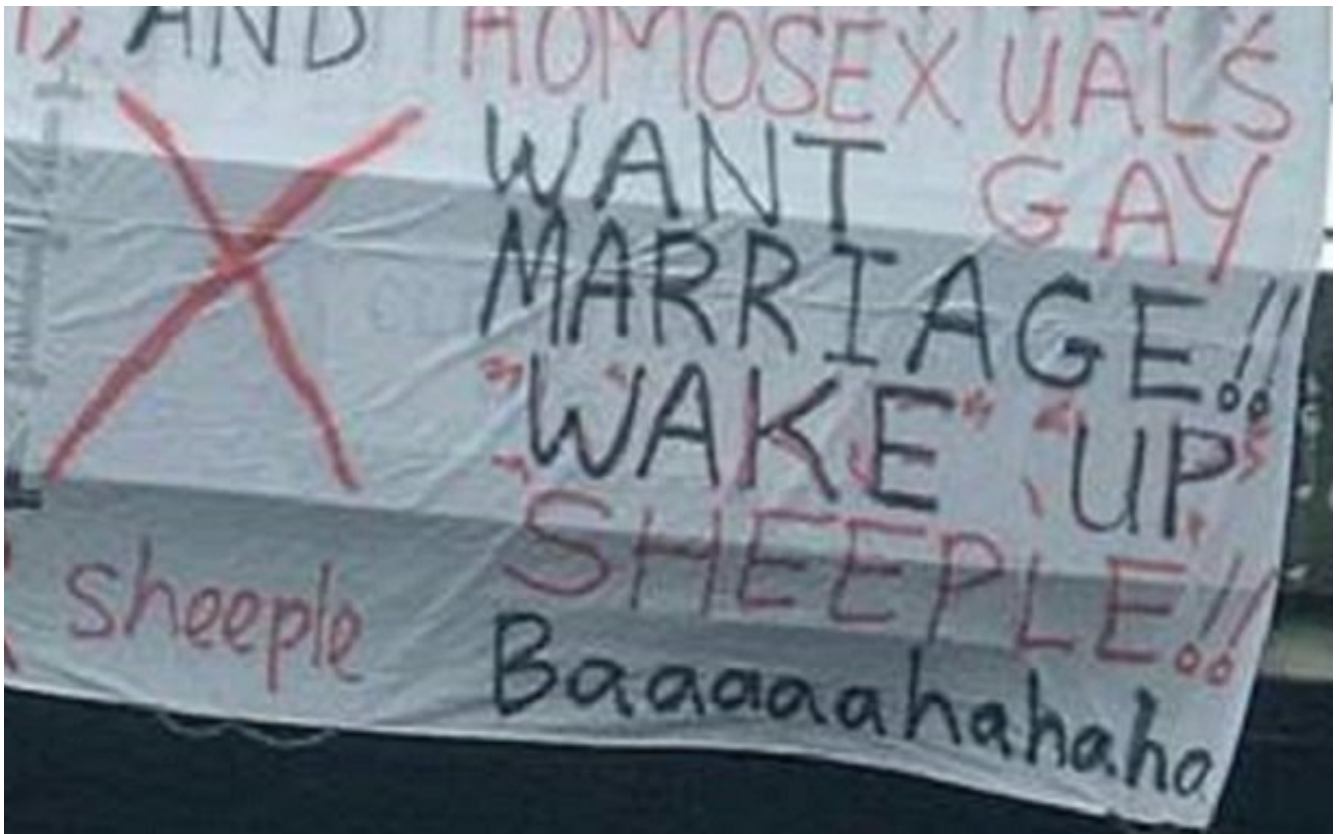 AND HOMOSEXUALS
WANT GAY
MARRIAGE!!
"WAKE" "UP"
SHEEPLE!!
sheeple
Baaaaahahaha